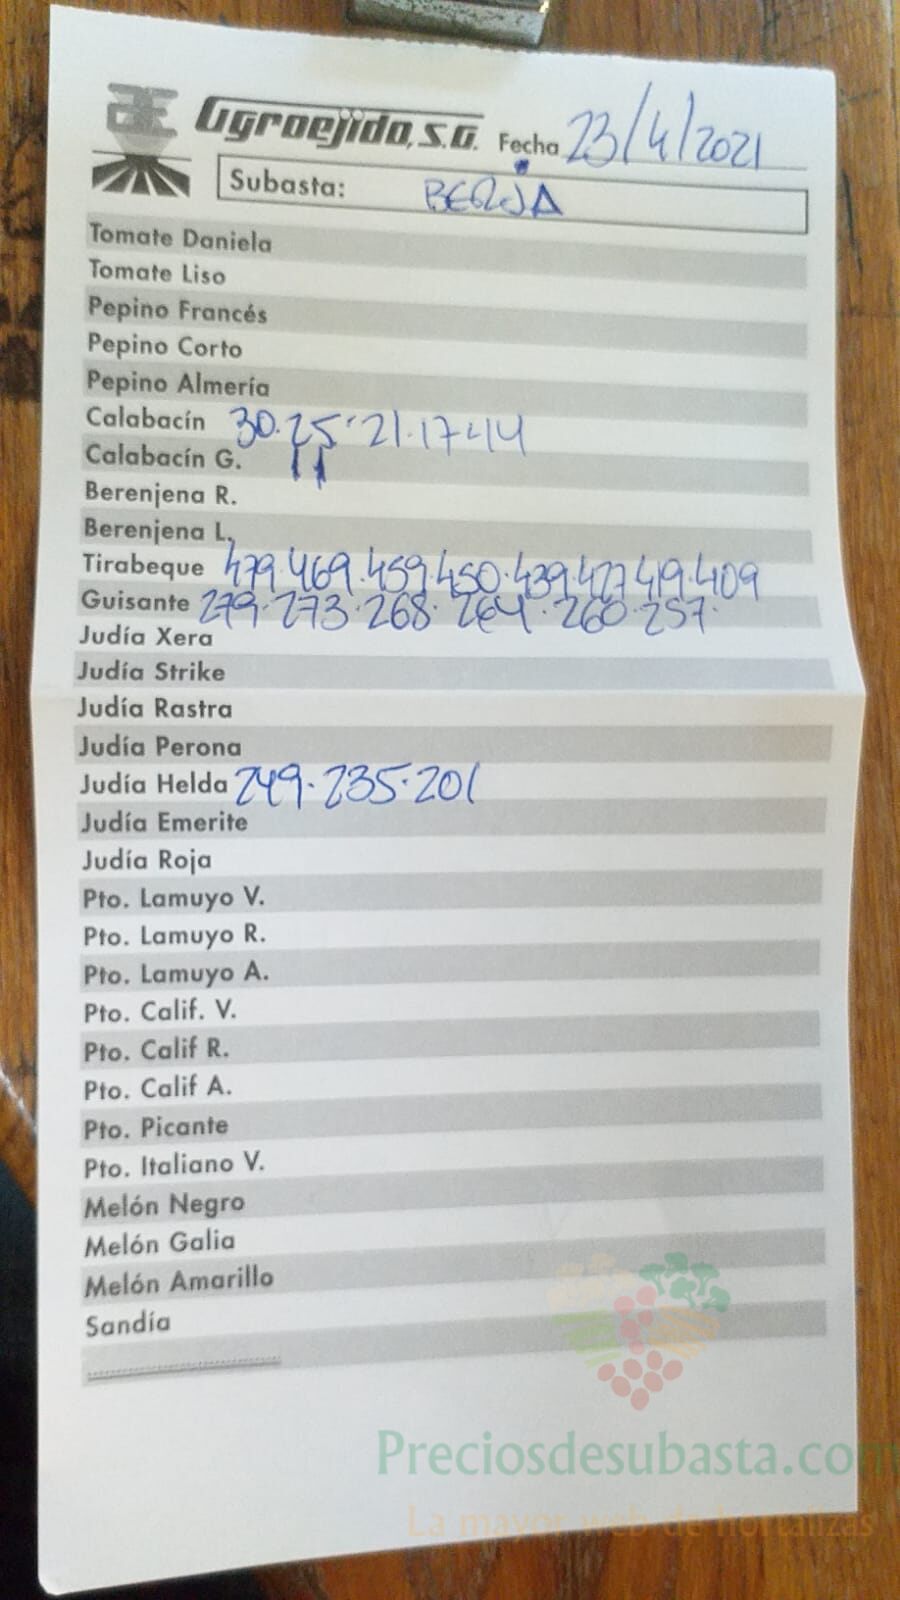 AE Agroejido, S.A. Fecha 23/4/2021
Subasta: BERJA
Tomate Daniela
Tomate Liso
Pepino Francés
Pepino Corto
Pepino Almería
Calabacín 30·25·21·17·14
Calabacín G. 11
Berenjena R.
Berenjena L.
Tirabeque 479·469·459·450·439·427·419·409
Guisante 279·273·268·264·260·257·
Judía Xera
Judía Strike
Judía Rastra
Judía Perona
Judía Helda 249·235·201
Judía Emerite
Judía Roja
Pto. Lamuyo V.
Pto. Lamuyo R.
Pto. Lamuyo A.
Pto. Calif. V.
Pto. Calif R.
Pto. Calif A.
Pto. Picante
Pto. Italiano V.
Melón Negro
Melón Galia
Melón Amarillo
Sandía
Preciosdesubasta.com
La mayor web de hortalizas